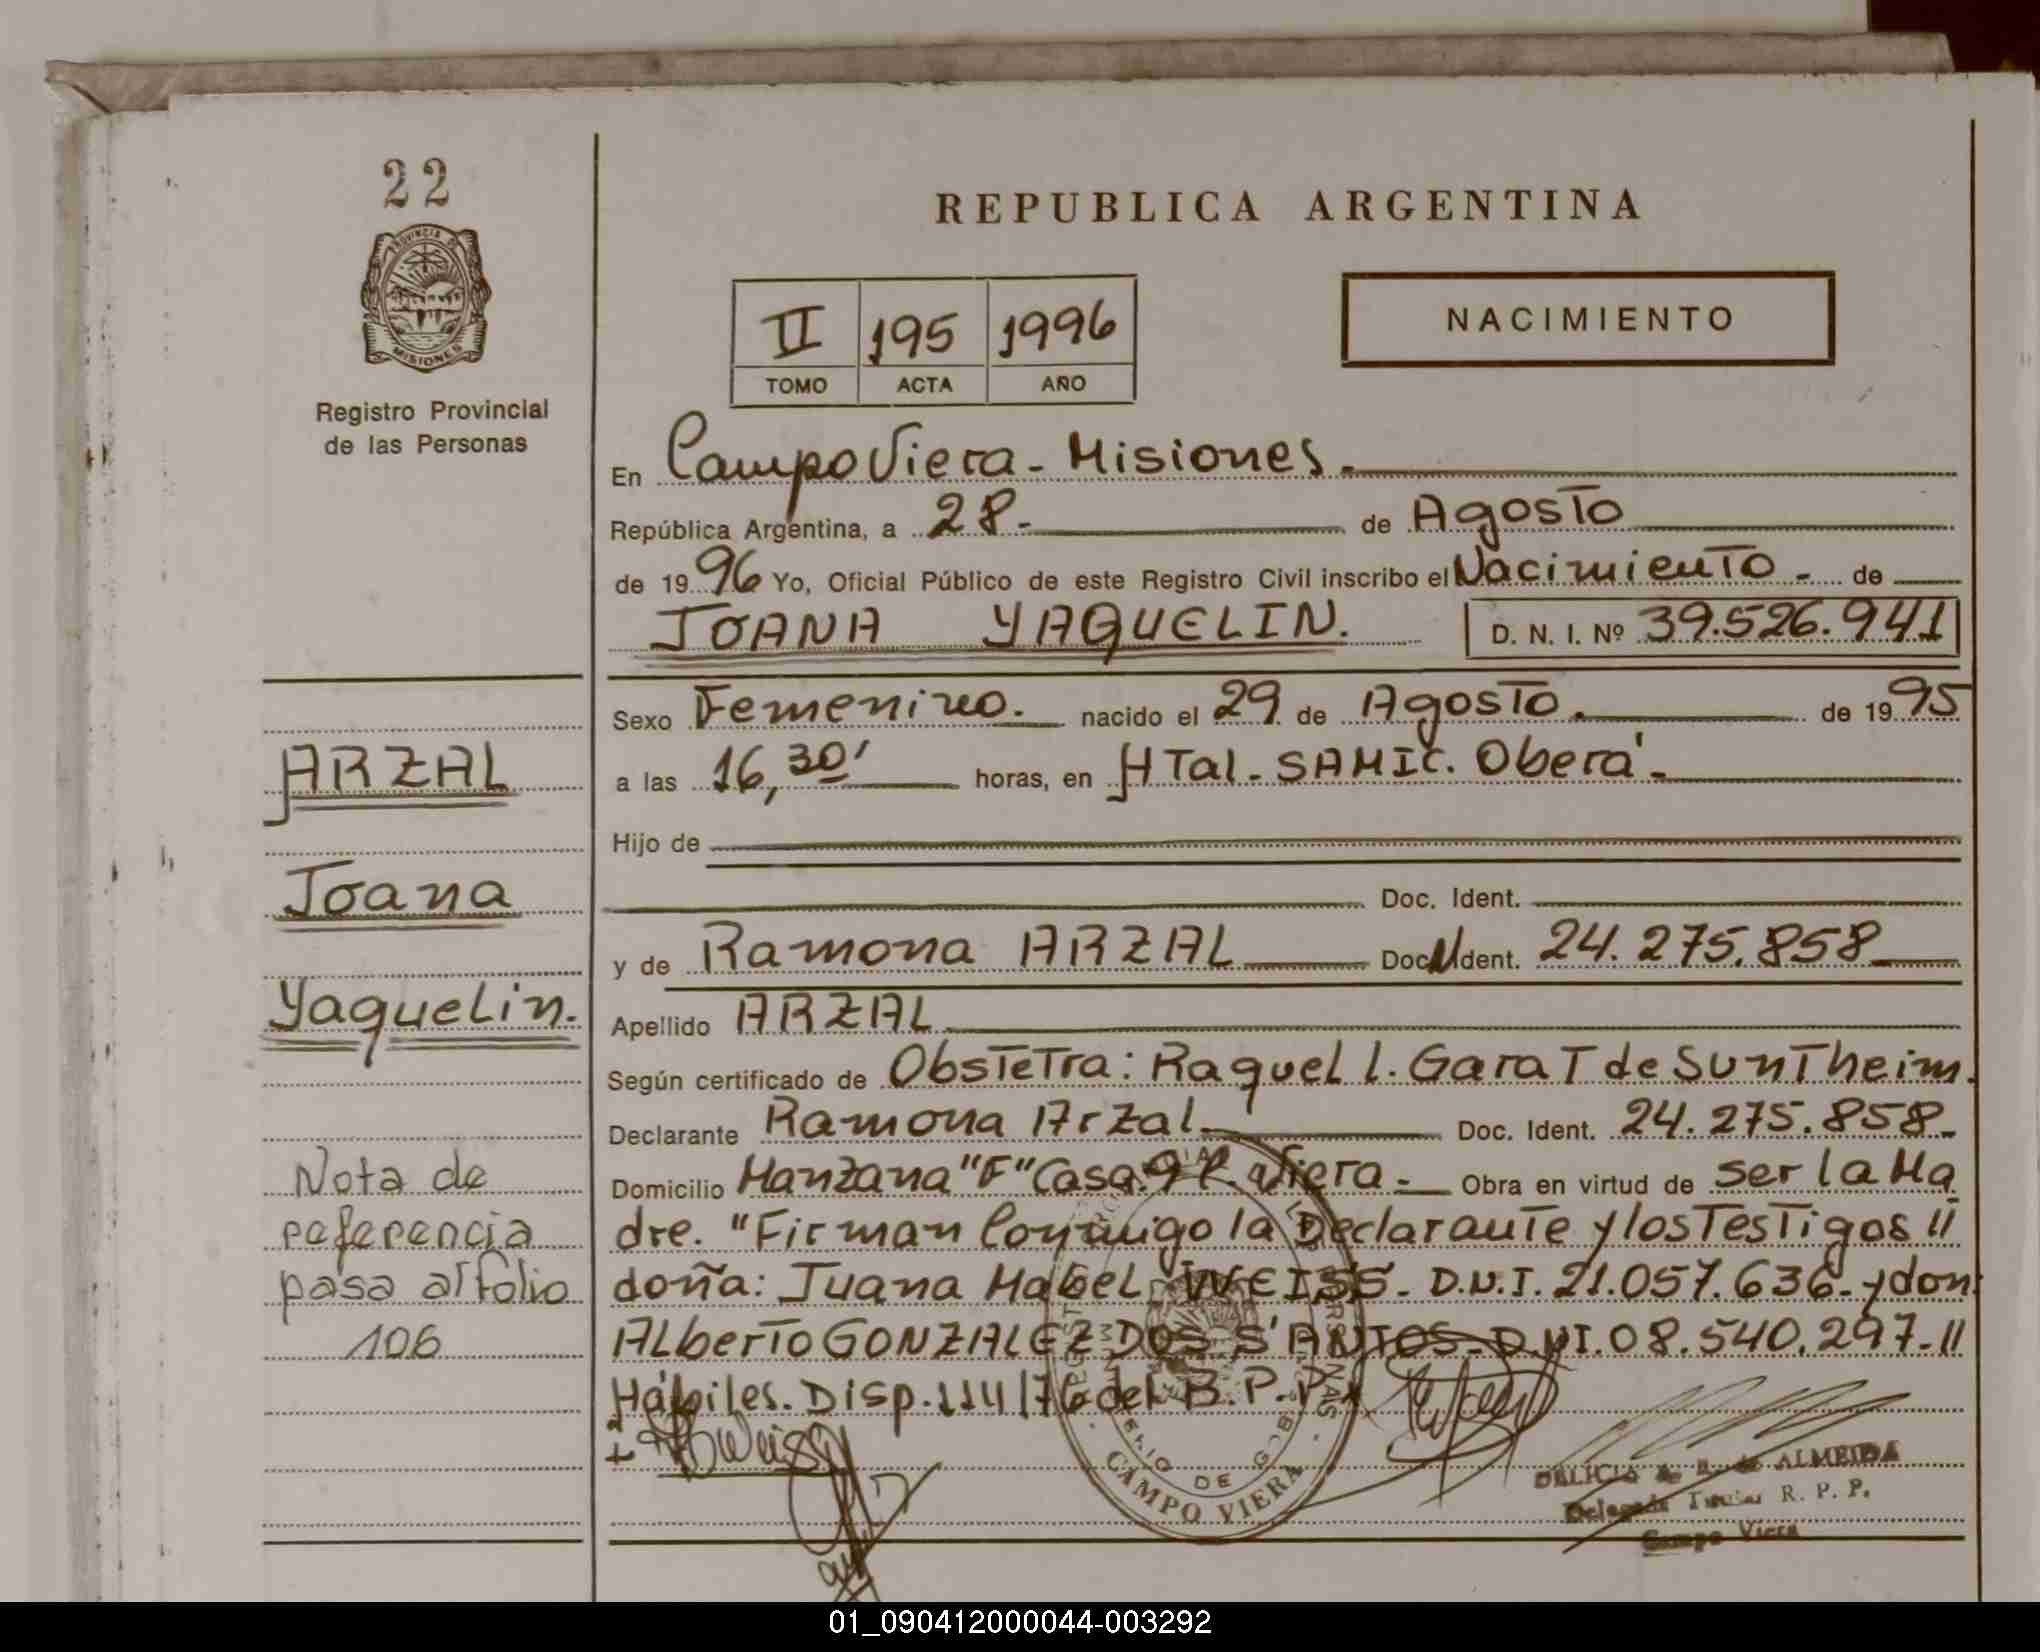 22
PROVINCIA DE
MISIONES
Registro Provincial
de las Personas
REPUBLICA ARGENTINA
II 195 1996
TOMO ACTA AÑO
NACIMIENTO
En Campo Viera - Misiones.-
República Argentina, a 28.- de Agosto
de 1996 Yo, Oficial Público de este Registro Civil inscribo el Nacimiento - de
JOANA YAQUELIN. D. N. I. Nº 39.526.941
Sexo Femenino. nacido el 29 de Agosto. de 1995
a las 16,30' horas, en HTal. SAMIC. Oberá.-
Hijo de
Doc. Ident.
y de Ramona ARZAL Doc. Ident. 24.275.858
Apellido ARZAL
Según certificado de Obstetra: Raquel l. Garat de Suntheim.
Declarante Ramona Arzal.- Doc. Ident. 24.275.858.-
Domicilio Manzana "F" Casa 9 C. Viera.- Obra en virtud de ser la Ma
dre. "Firman Conmigo la Declarante y los Testigos //
doña: Juana Mabel WEISS - D.N.I. 21.057.636.- y don:
Alberto GONZALEZ DOS SANTOS - D.NI. 08.540.297.-//
Hábiles. Disp. 114/76 del R.P.P.
ARZAL
Joana
Yaquelin.
Nota de
referencia
pasa al folio
106
CAMPO VIERA
DALICIA de ALMEIDA
Delegada Titular R. P. P.
Campo Viera
01_090412000044-003292